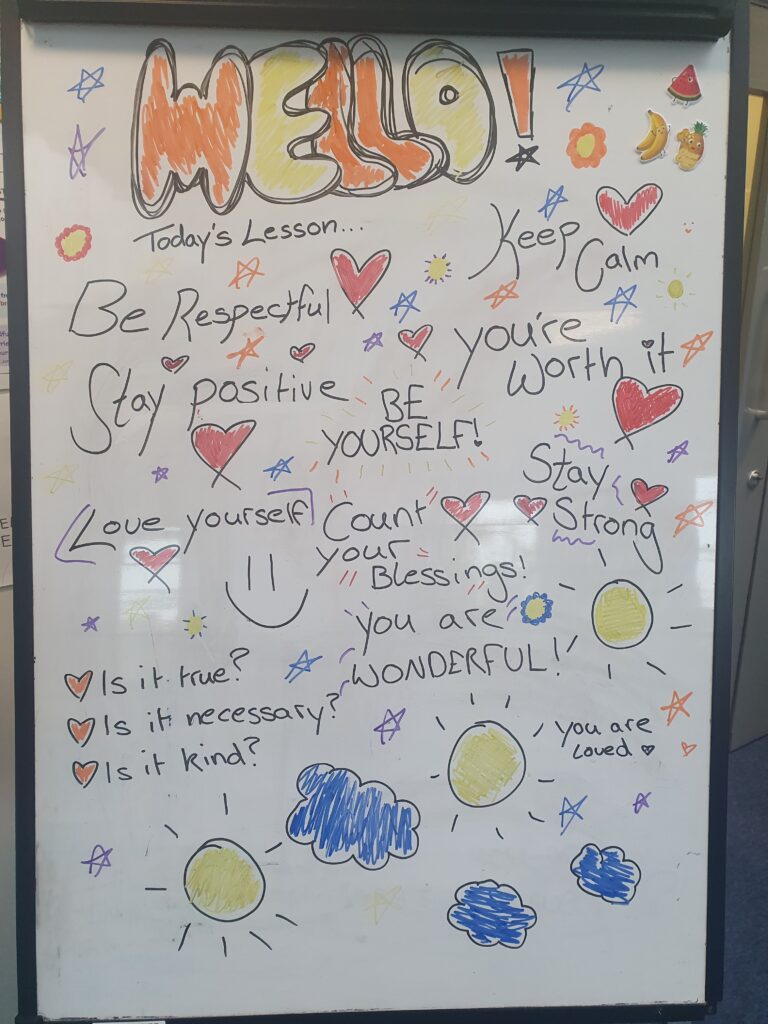 HELLO!
Today's Lesson...
Keep
Calm
Be Respectful
you're
Worth it
Stay positive
BE
YOURSELF!
Stay
Strong
Love yourself
Count
your
Blessings!
you are
WONDERFUL!
Is it true?
Is it necessary?
Is it kind?
you are
Loved